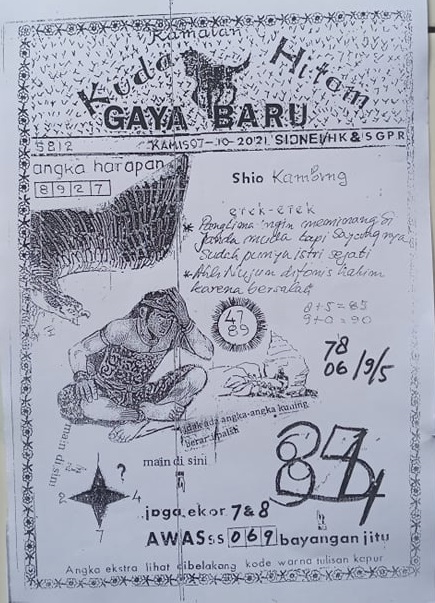 Ramalan
Kuda Hitam
GAYA BARU
5812
KAMIS 07-10-2021 SIDNEI/HK & SGPR
angka harapan
8927
Shio Kambing
erek-erek
* Panglima ingin meminang si
janda muda tapi sayangnya
sudah punya istri sejati
* Ahli Nujum difonis hakim
karena bersalah
47
89
8+5=85
9+0=90
78
06/9/5
tidak ada angka-angka kuning
berarti palsu
main disini
main di sini
?
2
4
7
834
jaga ekor 7&8
AWAS ss 069 bayangan jitu
Angka ekstra lihat dibelakang kode warna tulisan kapur